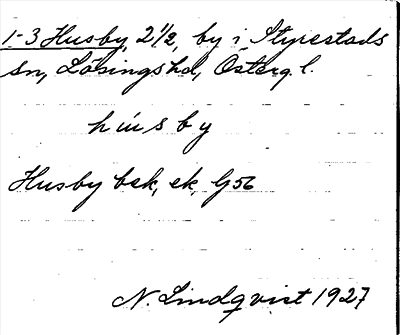 1-3 Husby, 2 1/2, by i Styrestads
sn, Lösings hd, Östergl.
húsby
Husby bsk, ek, G56
N. Lindqvist 1927